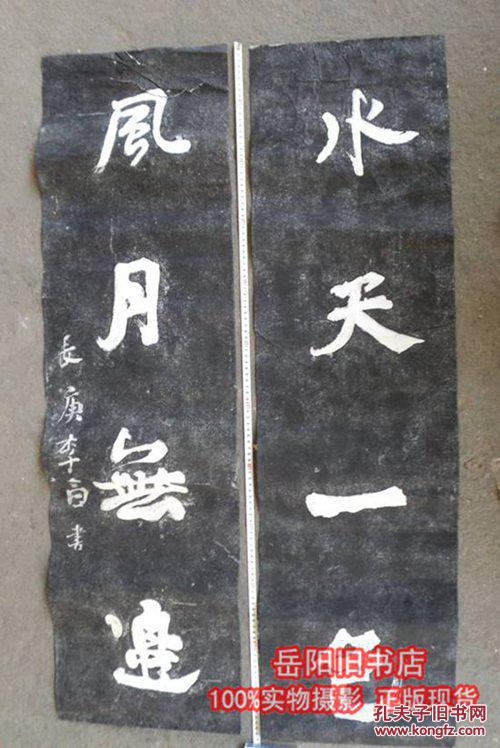 水天一色
風月無邊
長庚李白書
岳阳旧书店
100%实物摄影 正版现货
孔夫子旧书网
www.kongfz.com